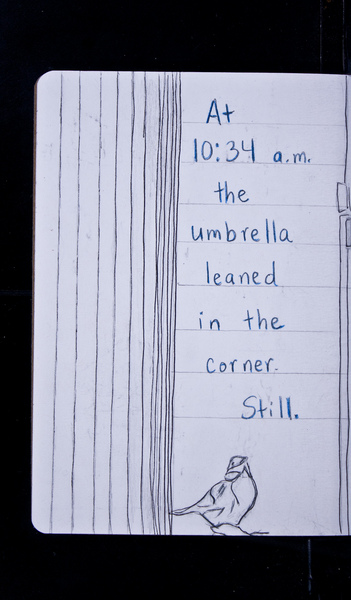 At
10:34 a.m.
the
umbrella
leaned
in the
corner.
Still.